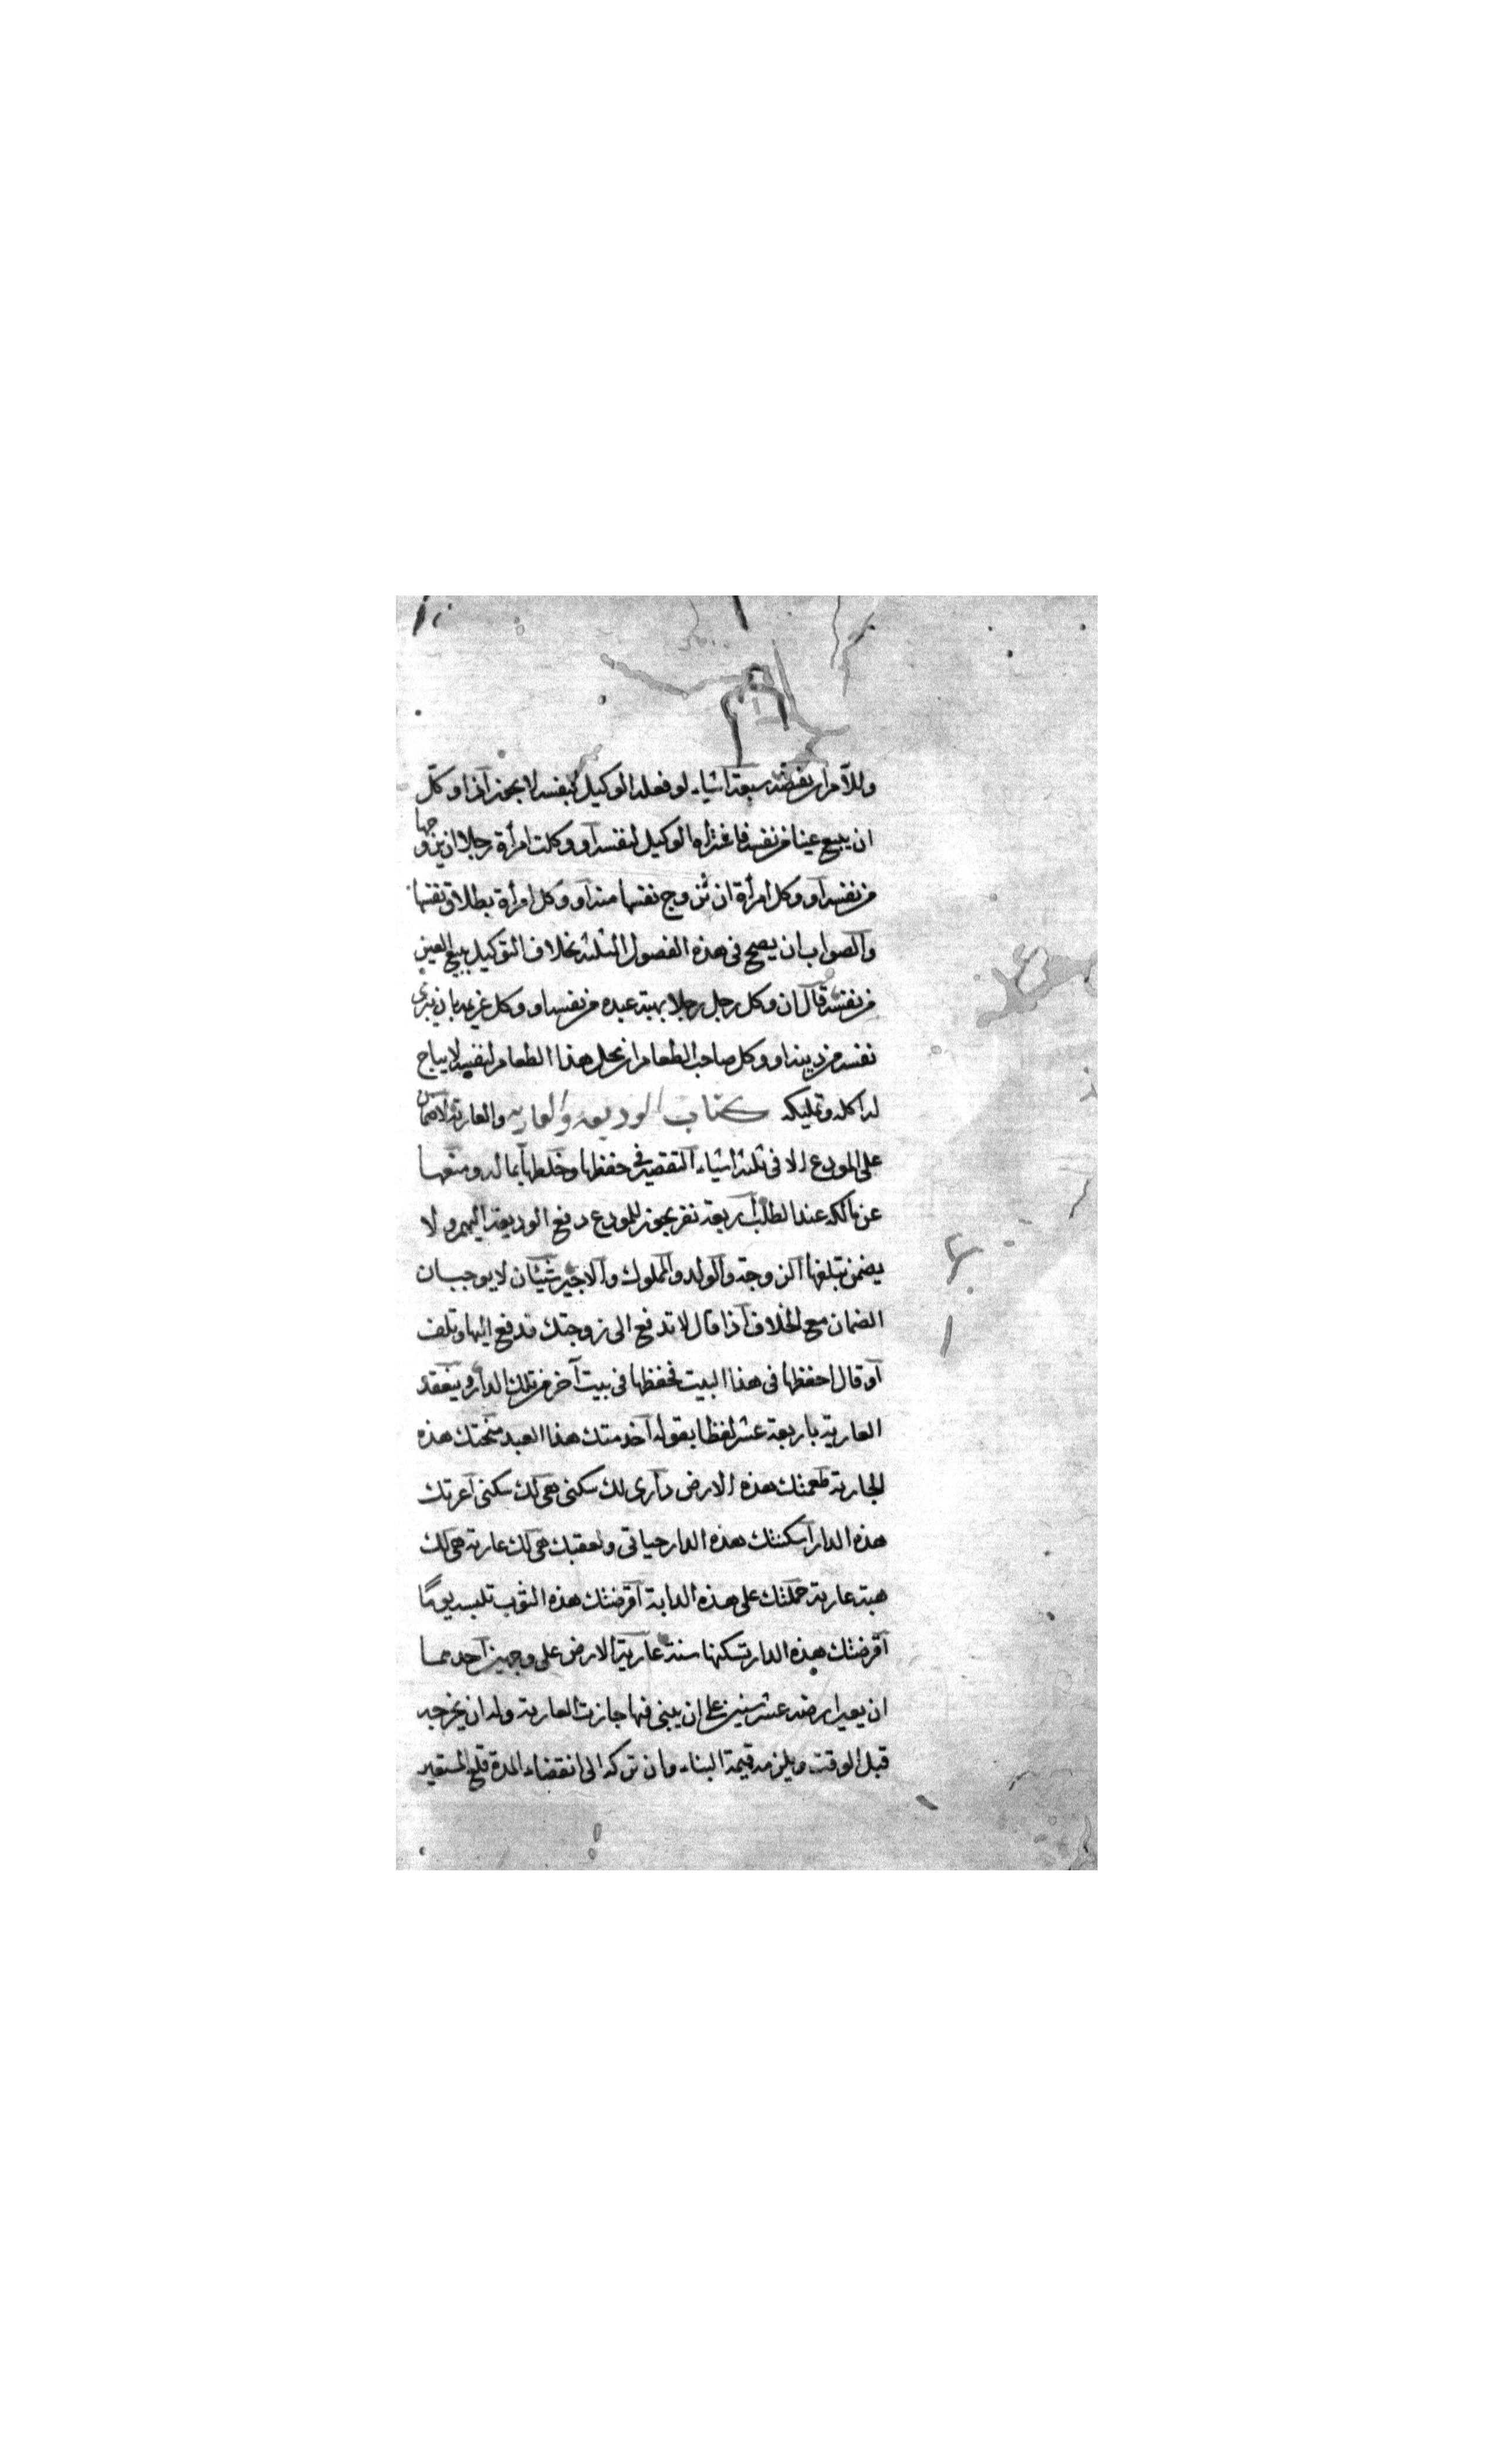 وللآمر ان يقبضه سبعة اشياء لو فعله الوكيل لنفسه لا يجوز اذا وكّل
ان يبيع عينا من نفسه فاشتراه الوكيل لنفسه او وكلت امرأة رجلا ان يزوجها
من نفسه او وكل امرأة ان تزوج نفسها منه او وكل امرأة بطلاق نفسها
والصواب ان يصح فى هذه الفصول الثلثة بخلاف التوكيل ببيع العين
من نفسه قال ان وكل رجل رجلا بهبة عبده من نفسه او وكل غريمه بان يبرى
نفسه من دينه او وكل صاحب الطعام ان يحل هذا الطعام لنفسه لا يباح
له اكله وتمليكه كتاب الوديعة والعارية والعارية لا ضمان
على المودع الا فى ثلثة اشياء التقصير فى حفظها وخلطها بماله ومنعها
عن مالكه عند الطلب اربعة نفر يجوز للمودع دفع الوديعة اليهم ولا
يضمن بتلفها الزوجة والولد والمملوك والاجير شيئان لا يوجبان
الضمان مع الخلاف اذا قال لا تدفع الى زوجتك فدفع اليها وتلف
او قال احفظها فى هذا البيت فحفظها فى بيت آخر من تلك الدار وينعقد
العارية باربعة عشر لفظا بقوله اخدمتك هذا العبد منحتك هذه
الجارية طعمتك هذه الارض دارى لك سكنى هى لك سكنى اعرتك
هذه الدار اسكنتك هذه الدار حياتى ولعقبك هى لك عارية هى لك
هبة عارية حملتك على هذه الدابة اقرضتك هذه الثوب تلبسه يومًا
اقرضتك هذه الدار تسكنها سنة عارية الارض على وجهين احدهما
ان يعير ارضه عشر سنين على ان يبنى فيها جازت العارية وله ان يخرجه
قبل الوقت ويلزمه قيمة البناء وان تركه الى انقضاء المدة قلع المستعير